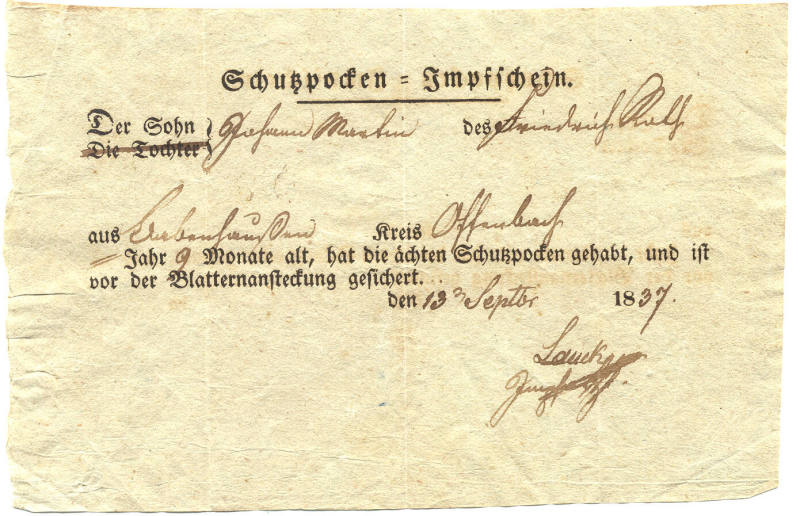 Schutzpocken = Impfschein.
Der Sohn } Johann Martin des Friedrich Roth
Die Tochter }
aus Babenhaußen Kreis Offenbach
– Jahr 9 Monate alt, hat die ächten Schutzpocken gehabt, und ist
vor der Blatternansteckung gesichert.
den 13 Septbr 1837.